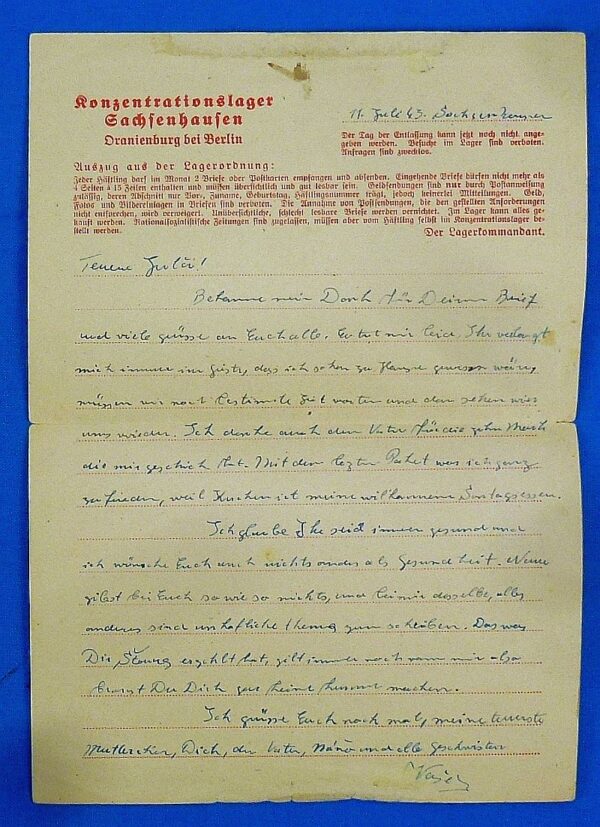 Konzentrationslager
Sachsenhausen
Oranienburg bei Berlin
11. Juli 43. Sachsenhausen
Der Tag der Entlassung kann jetzt noch nicht ange-
geben werden. Besuche im Lager sind verboten.
Anfragen sind zwecklos.
Auszug aus der Lagerordnung:
Jeder Häftling darf im Monat 2 Briefe oder Postkarten empfangen und absenden. Eingehende Briefe dürfen nicht mehr als
4 Seiten à 15 Zeilen enthalten und müssen übersichtlich und gut lesbar sein. Geldsendungen sind nur durch Postanweisung
zulässig, deren Abschnitt nur Vor-, Zuname, Geburtstag, Häftlingsnummer trägt, jedoch keinerlei Mitteilungen. Geld,
Fotos und Bildereinlagen in Briefen sind verboten. Die Annahme von Postsendungen, die den gestellten Anforderungen
nicht entsprechen, wird verweigert. Unübersichtliche, schlecht lesbare Briefe werden vernichtet. Im Lager kann alles ge-
kauft werden. Nationalsozialistische Zeitungen sind zugelassen, müssen aber vom Häftling selbst im Konzentrationslager be-
stellt werden.
Der Lagerkommandant.
Teuere
mein Dank für Deinen Brief
und viele grüsse an Euch alle. Es tut mir leid, Ihr verlangt
mich immer im dass ich schon zu Hause gewesen wäre,
müssen wir noch bestimte Zeit warten und dan sehen wir
uns wieder. Ich danke auch dem Vater für die zehn Mark
die mir geschickt hat. Mit dem lezten Paket war ich ganz
zufrieden, weil Kuchen ist meine willkommene Sontagsessen.
Ich glaube Ihr seid immer gesund und
ich wünsche Euch auch nichts anders als Gesundheit. Neues
gibst bei Euch so wie so nichts, und bei mir dasselbe, alles
anderes sind unhafliche thema zum schreiben. Das was
Dir erzehlt hat, gilt immer noch von mir also
braust Du Dich gar keine machen.
Ich grüsse Euch noch mal, meine teuerste
Mutterchen, Dich, den Vater, und alle geschwister